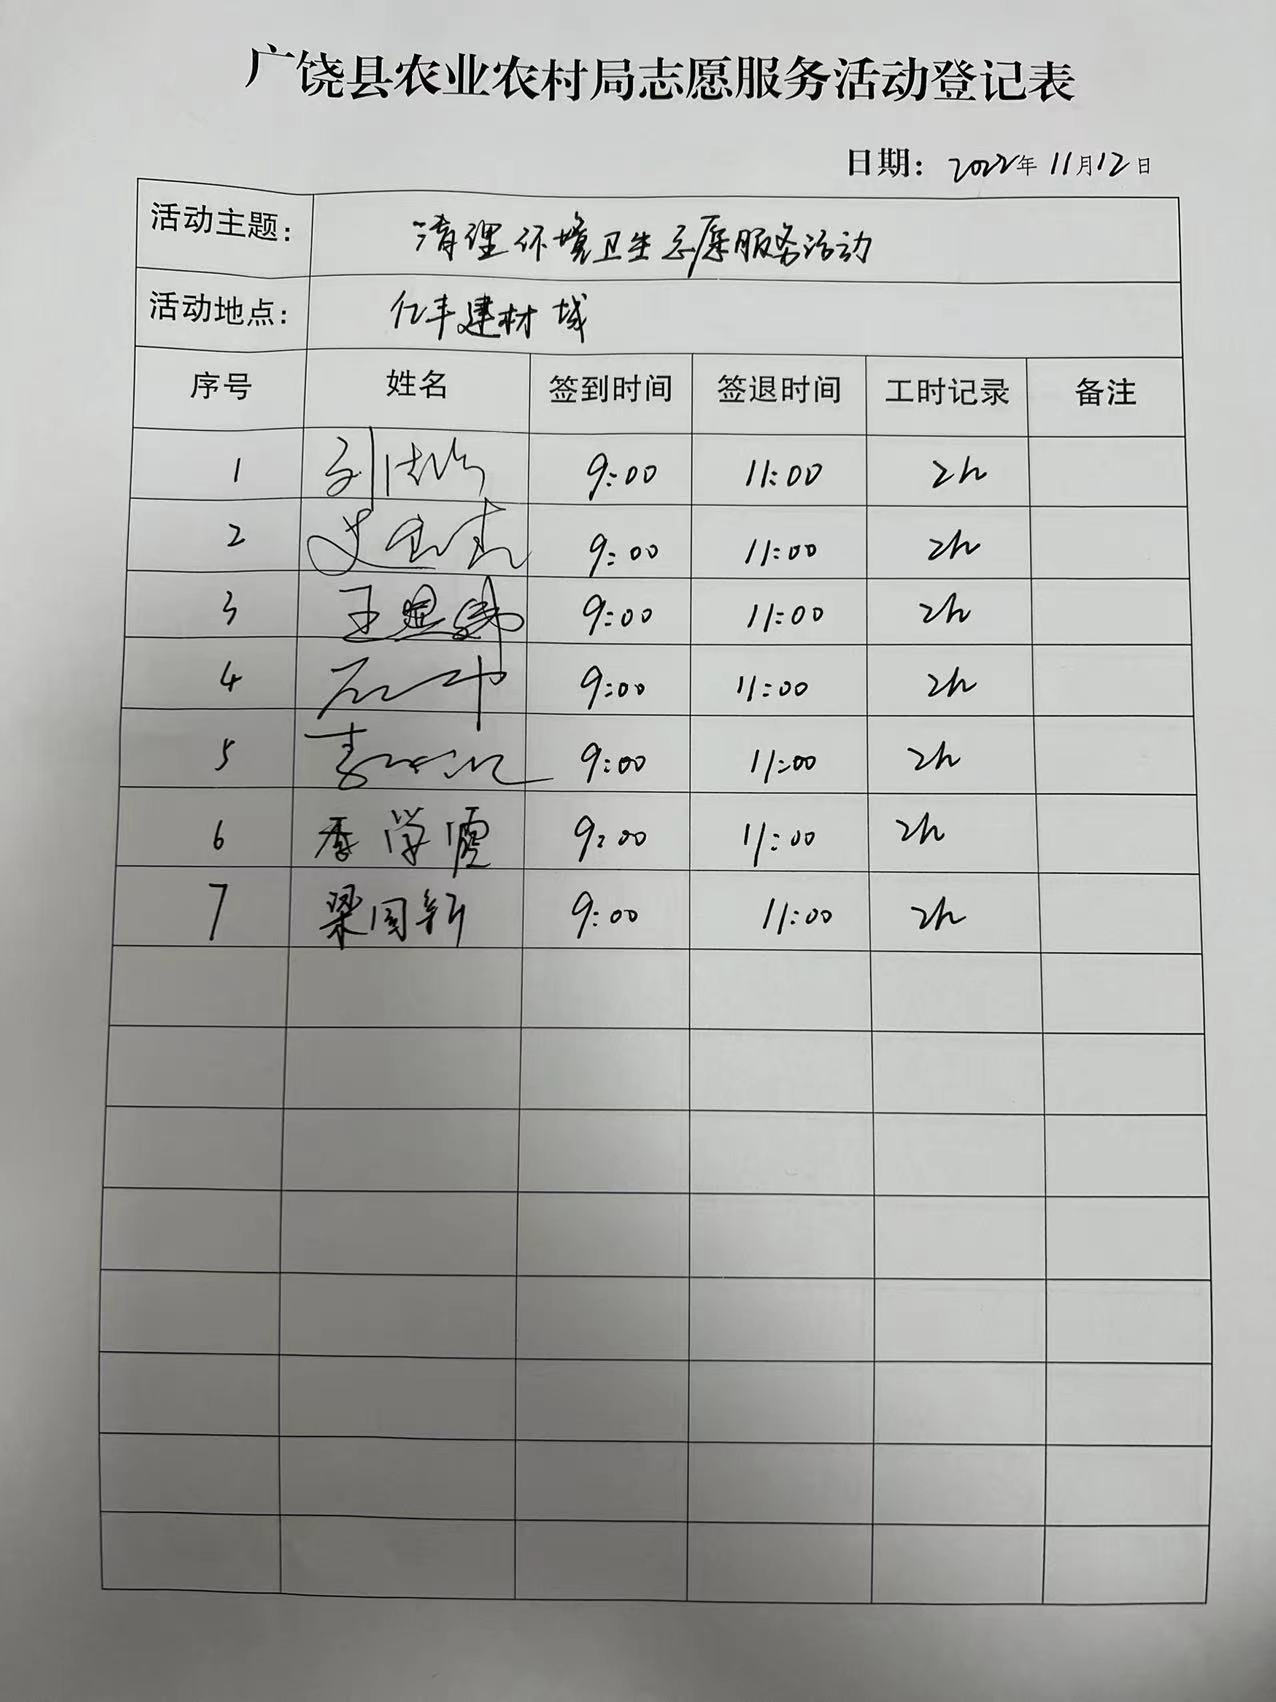 广饶县农业农村局志愿服务活动登记表
日期：2022年 11月12日
活动主题： 清理环境卫生志愿服务活动
活动地点： 亿丰建材城
序号 姓名 签到时间 签退时间 工时记录 备注
1 9:00 11:00 2h
2 9:00 11:00 2h
3 王 9:00 11:00 2h
4 9:00 11:00 2h
5 李 9:00 11:00 2h
6 季学虎 9:00 11:00 2h
7 梁国新 9:00 11:00 2h